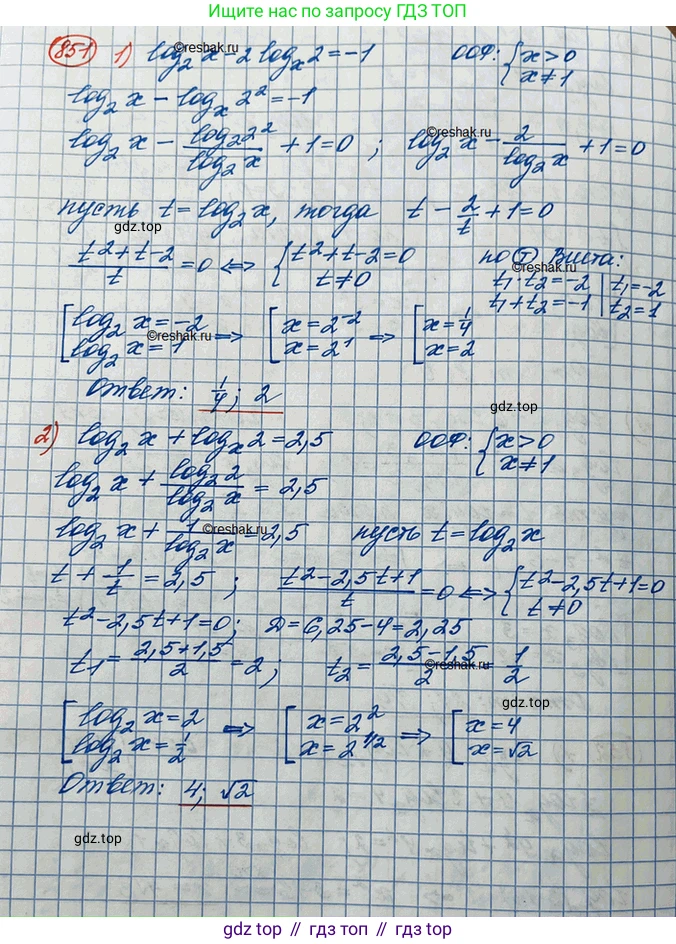 Ищите нас по запросу ГДЗ ТОП
851 1) log₂ x - 2 logₓ 2 = -1 ООФ: { x > 0 x ≠ 1
©reshak.ru
log₂ x - logₓ 2² = -1
log₂ x - log₂ 2² / log₂ x + 1 = 0 ; log₂ x - 2 / log₂ x + 1 = 0
©reshak.ru
пусть t = log₂ x, тогда t - 2/t + 1 = 0
gdz.top
t² + t - 2 / t = 0 <=> { t² + t - 2 = 0 t ≠ 0 по Т Виета:
t₁ · t₂ = -2 | t₁ = -2
t₁ + t₂ = -1 | t₂ = 1
[ log₂ x = -2 log₂ x = 1 => [ x = 2⁻² x = 2¹ => [ x = 1/4 x = 2
©reshak.ru
Ответ: 1/4; 2
gdz.top
2) log₂ x + logₓ 2 = 2,5 ООФ: { x > 0 x ≠ 1
log₂ x + log₂ 2 / log₂ x = 2,5
log₂ x + 1 / log₂ x = 2,5 пусть t = log₂ x
©reshak.ru
t + 1/t = 2,5 ; t² - 2,5t + 1 / t = 0 <=> { t² - 2,5t + 1 = 0 t ≠ 0
t² - 2,5t + 1 = 0; Д = 6,25 - 4 = 2,25
t₁ = 2,5 + 1,5 / 2 = 2; t₂ = 2,5 - 1,5 / 2 = 1/2
©reshak.ru
gdz.top
[ log₂ x = 2 log₂ x = 1/2 => [ x = 2² x = 2^1/2 => [ x = 4 x = √2
Ответ: 4; √2
gdz.top
gdz.top // гдз топ // gdz.top